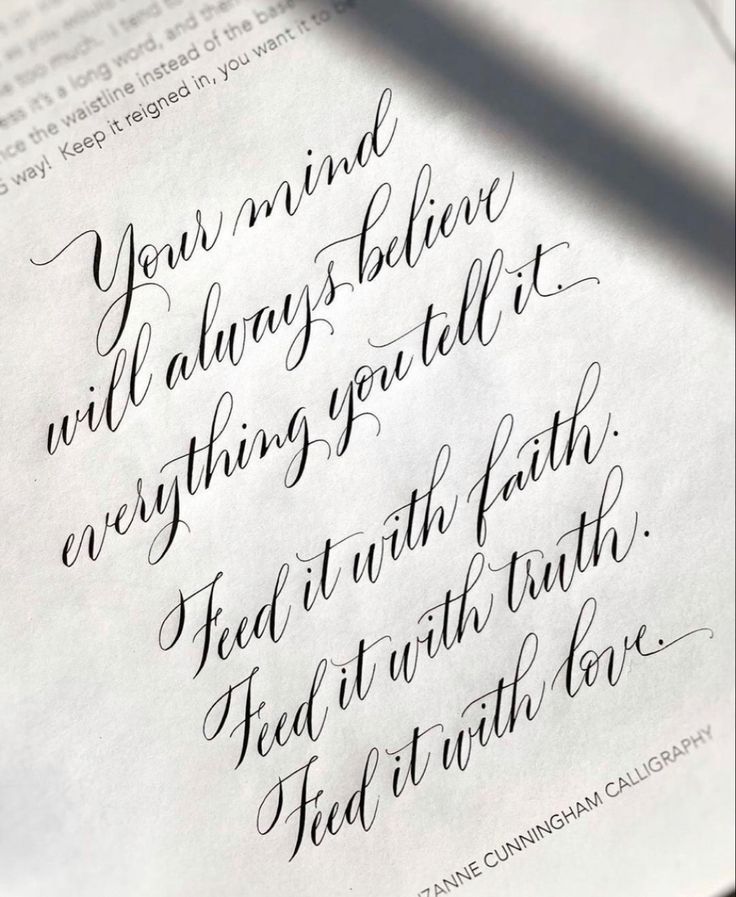 too much. I tend to
it's a long word, and then
the waistline instead of the
way! Keep it reigned in, you want it to be
Your mind
will always believe
everything you tell it.
Feed it with faith.
Feed it with truth.
Feed it with love.
ZANNE CUNNINGHAM CALLIGRAPHY